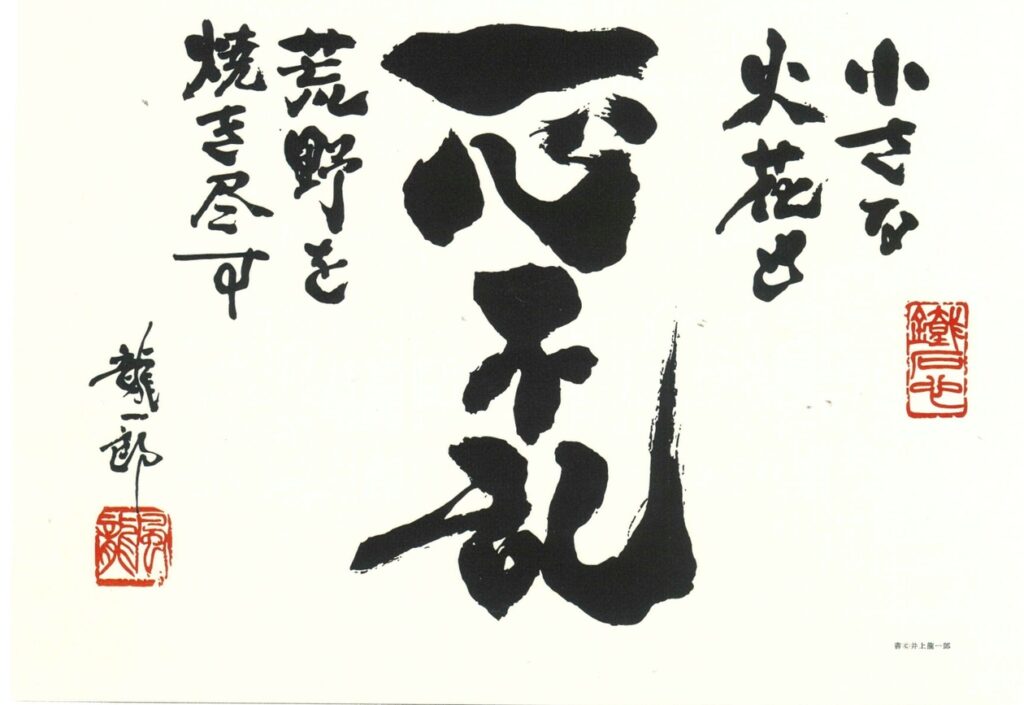 小さな
火花も
一心不乱
荒野を
焼き尽す
龍一郎
風龍
書©井上龍一郎